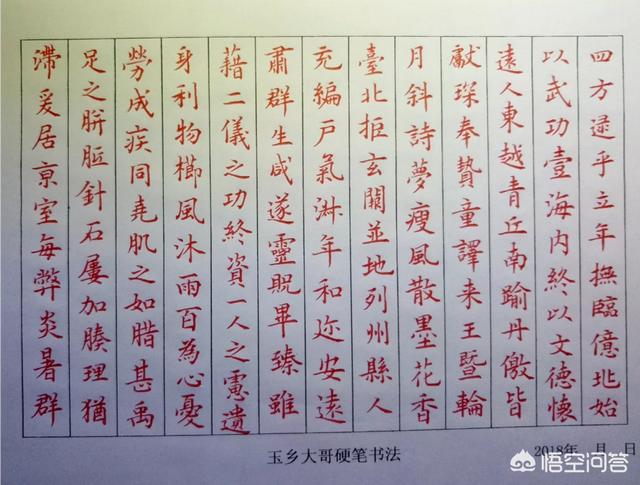 四方逮乎立年撫臨億兆始
以武功壹海内終以文德懷
遠人東越青丘南踰丹儌皆
獻琛奉贄童譯来王暨輪
月斜詩夢瘦風散墨花香
臺北拒玄闕並地列州縣人
充編戶氣淑年和迩安遠
肅群生咸遂靈貺畢臻雖
藉二儀之功終資一人之慮遺
身利物櫛風沐雨百為心憂
勞成疾同堯肌之如腊甚禹
足之胼胝針石屢加腠理猶
滯爰居京室每弊炎暑群
玉乡大哥硬笔书法
2018年 月 日
悟空问答